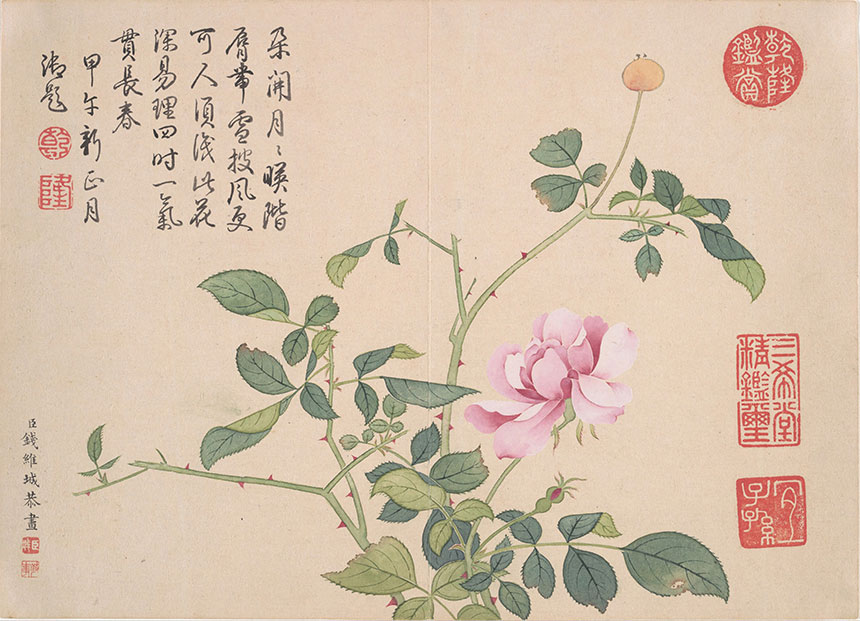 乾隆鑑賞
三希堂
精鑑璽
宜子孫
朵開月〻暎階
脣帶雪披風更
可人須識此花
深易理四時一氣
貫長春
甲午新正月
御題
乾
隆
臣錢維城恭畫